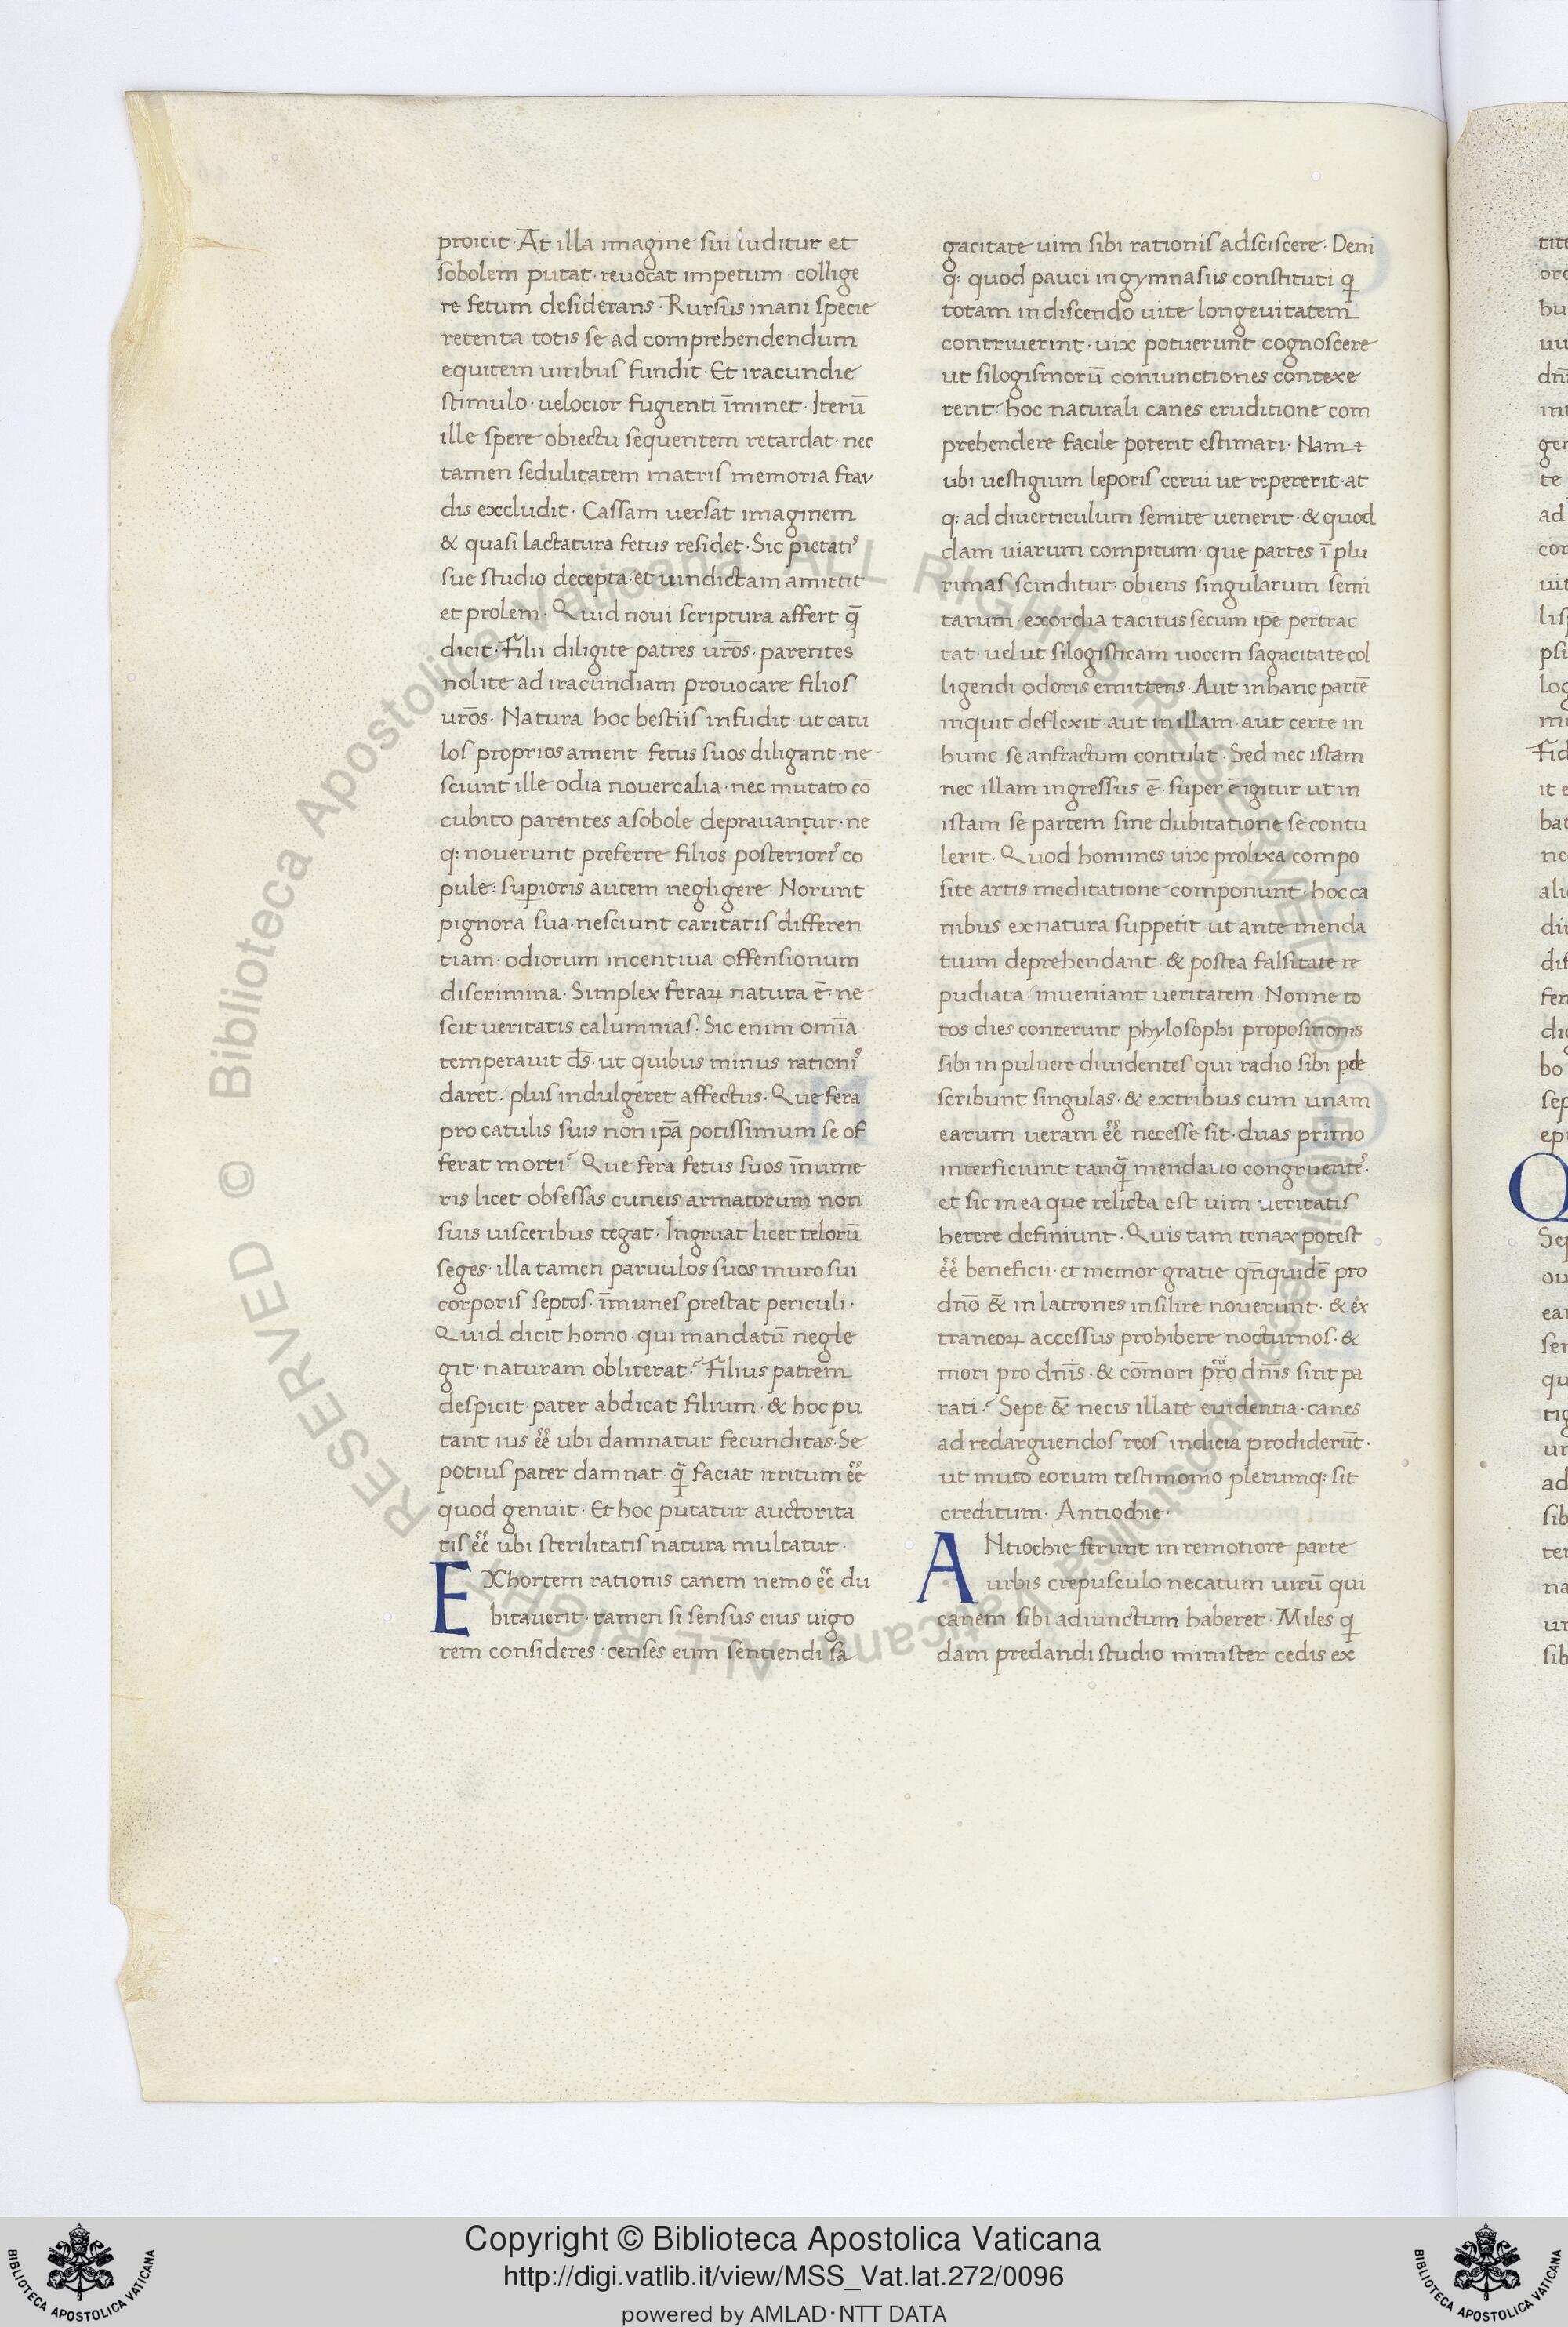 proicit· At illa imagine sui luditur et
sobolem putat· reuocat impetum· collige
re fetum desiderans· Rursus inani specie
retenta totis se ad comprehendendum
equitem uiribus fundit· Et iracundie
stimulo· uelocior fugienti īminet· Iterū
ille spere obiectu sequentem retardat· nec
tamen sedulitatem matris memoria frau
dis excludit· Cassam uersat imaginem
& quasi lactatura fetus residet· Sic pietatiˀ
sue studio decepta· et uindictam amittit
et prolem· Quid noui scriptura affert q̄
dicit· Filii diligite patres urōs· parentes
nolite ad iracundiam prouocare filios
urōs· Natura hoc bestiis infudit· ut catu
los proprios ament· fetus suos diligant· ne-
sciunt ille odia nouercalia· nec mutato cō
cubito parentes a sobole deprauantur· ne
q: nouerunt preferre filios posterioriˀ co
pule: supioris autem negligere· Norunt
pignora sua· nesciunt caritatis differen
tiam· odiorum incentiua· offensionum
discrimina· Simplex feraꝝ natura ē· ne-
scit ueritatis calumnias· Sic enim omīa
temperauit ds̄· ut quibus minus rationiˀ
daret· plus indulgeret affectus· Que fera
pro catulis suis non ipā potissimum se of
ferat morti? Que fera fetus suos īnume
ris licet obsessas cuneis armatorum non
suis uisceribus tegat· Ingruat licet telorū
seges· illa tamen paruulos suos muro sui
corporis septos· īmunes prestat periculi·
Quid dicit homo· qui mandatū negle
git· naturam obliterat? Filius patrem
despicit· pater abdicat filium· & hoc pu
tant ius ēē ubi damnatur fecunditas· Se
potius pater damnat· q̄ faciat irritum ēē
quod genuit· Et hoc putatur auctorita
tis ēē ubi sterilitatis natura multatur·
EXhortem rationis canem nemo ēē du
bitauerit· tamen si sensus eius uigo
rem consideres: censes eum sentiendi sa
gacitate uim sibi rationis adsciscere· Deni
q: quod pauci in gymnasiis constituti q
totam in discendo uite longeuitatem
contriuerint· uix potuerunt cognoscere
ut silogismorū coniunctiones contexe
rent: hoc naturali canes eruditione com
prehendere facile poterit estimari· Nam
ubi uestigium leporis cerui ue repererit· at
q: ad diuerticulum semite uenerit· & quod
dam uiarum compitum· que partes ī plu
rimas scinditur· obiens singularum semi
tarum· exordia tacitus secum ipē pertrac
tat· uelut silogisticam uocem sagacitate col
ligendi odoris emittens· Aut in hanc partē
inquit deflexit· aut in illam· aut certe in
hunc se anfractum contulit· Sed nec istam
nec illam ingressus ē· super ē igitur ut in
istam se partem sine dubitatione se contu
lerit· Quod homines uix prolixa compo
site artis meditatione componunt· hoc ca
nibus ex natura suppetit ut ante menda
tium deprehendant· & postea falsitate re
pudiata· inueniant ueritatem· Nonne to
tos dies conterunt phylosophi propositionis
sibi in puluere diuidentes qui radio sibi pde
scribunt singulas· & ex tribus cum unam
earum ueram ēē necesse sit· duas primo
interficiunt tanq̄ mendauo congruenteˀ·
et sic in ea que relicta est uim ueritatis
herere definiunt· Quis tam tenax potest
ēē beneficii· et memor gratie qn̄quidē pro
dnō & in latrones insilire nouerunt· & ex
traneoꝝ accessus prohibere nocturnos· &
mori pro dnīs· & cōmori pro dnīs sint pa
rati? Sepe & necis illate euidentia· canes
ad redarguendos reos indicia prodiderūt·
ut muto eorum testimonio plerumq: sit
creditum· Antiochie·
ANtiochie ferunt in remotiore parte
urbis crepusculo necatum uirū qui
canem sibi adiunctum haberet· Miles q
dam predandi studio minister cedis ex
Copyright © Biblioteca Apostolica Vaticana
http://digi.vatlib.it/view/MSS_Vat.lat.272/0096
powered by AMLAD·NTT DATA